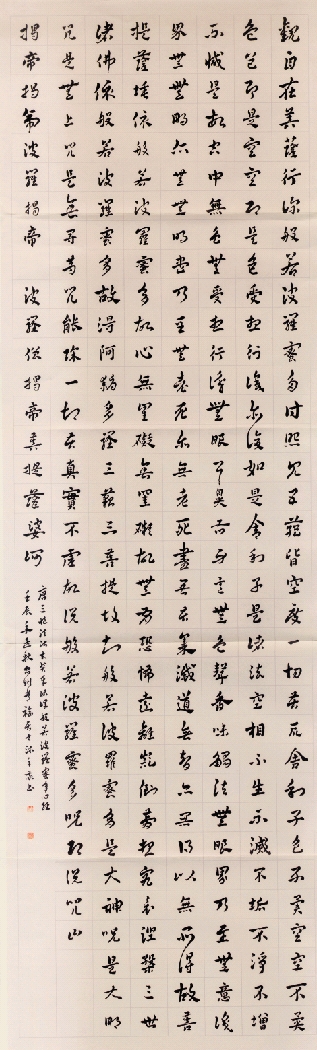 觀自在菩薩行深般若波羅蜜多時照見五蘊皆空度一切苦厄舍利子色不異空空不異
色色即是空空即是色受想行識亦復如是舍利子是諸法空相不生不滅不垢不淨不增
不減是故空中無色無受想行識無眼耳鼻舌身意無色聲香味觸法無眼界乃至無意識
界無無明亦無無明盡乃至無老死亦無老死盡無苦集滅道無智亦無得以無所得故菩
提薩埵依般若波羅蜜多故心無罣礙無罣礙故無有恐怖遠離顛倒夢想究竟涅槃三世
諸佛依般若波羅蜜多故得阿耨多羅三藐三菩提故知般若波羅蜜多是大神咒是大明
咒是無上咒是無等等咒能除一切苦真實不虛故說般若波羅蜜多咒即說咒曰
揭帝揭帝波羅揭帝 波羅僧揭帝菩提薩婆訶
唐三藏法師玄奘奉詔譯般若波羅蜜多心經
壬辰年